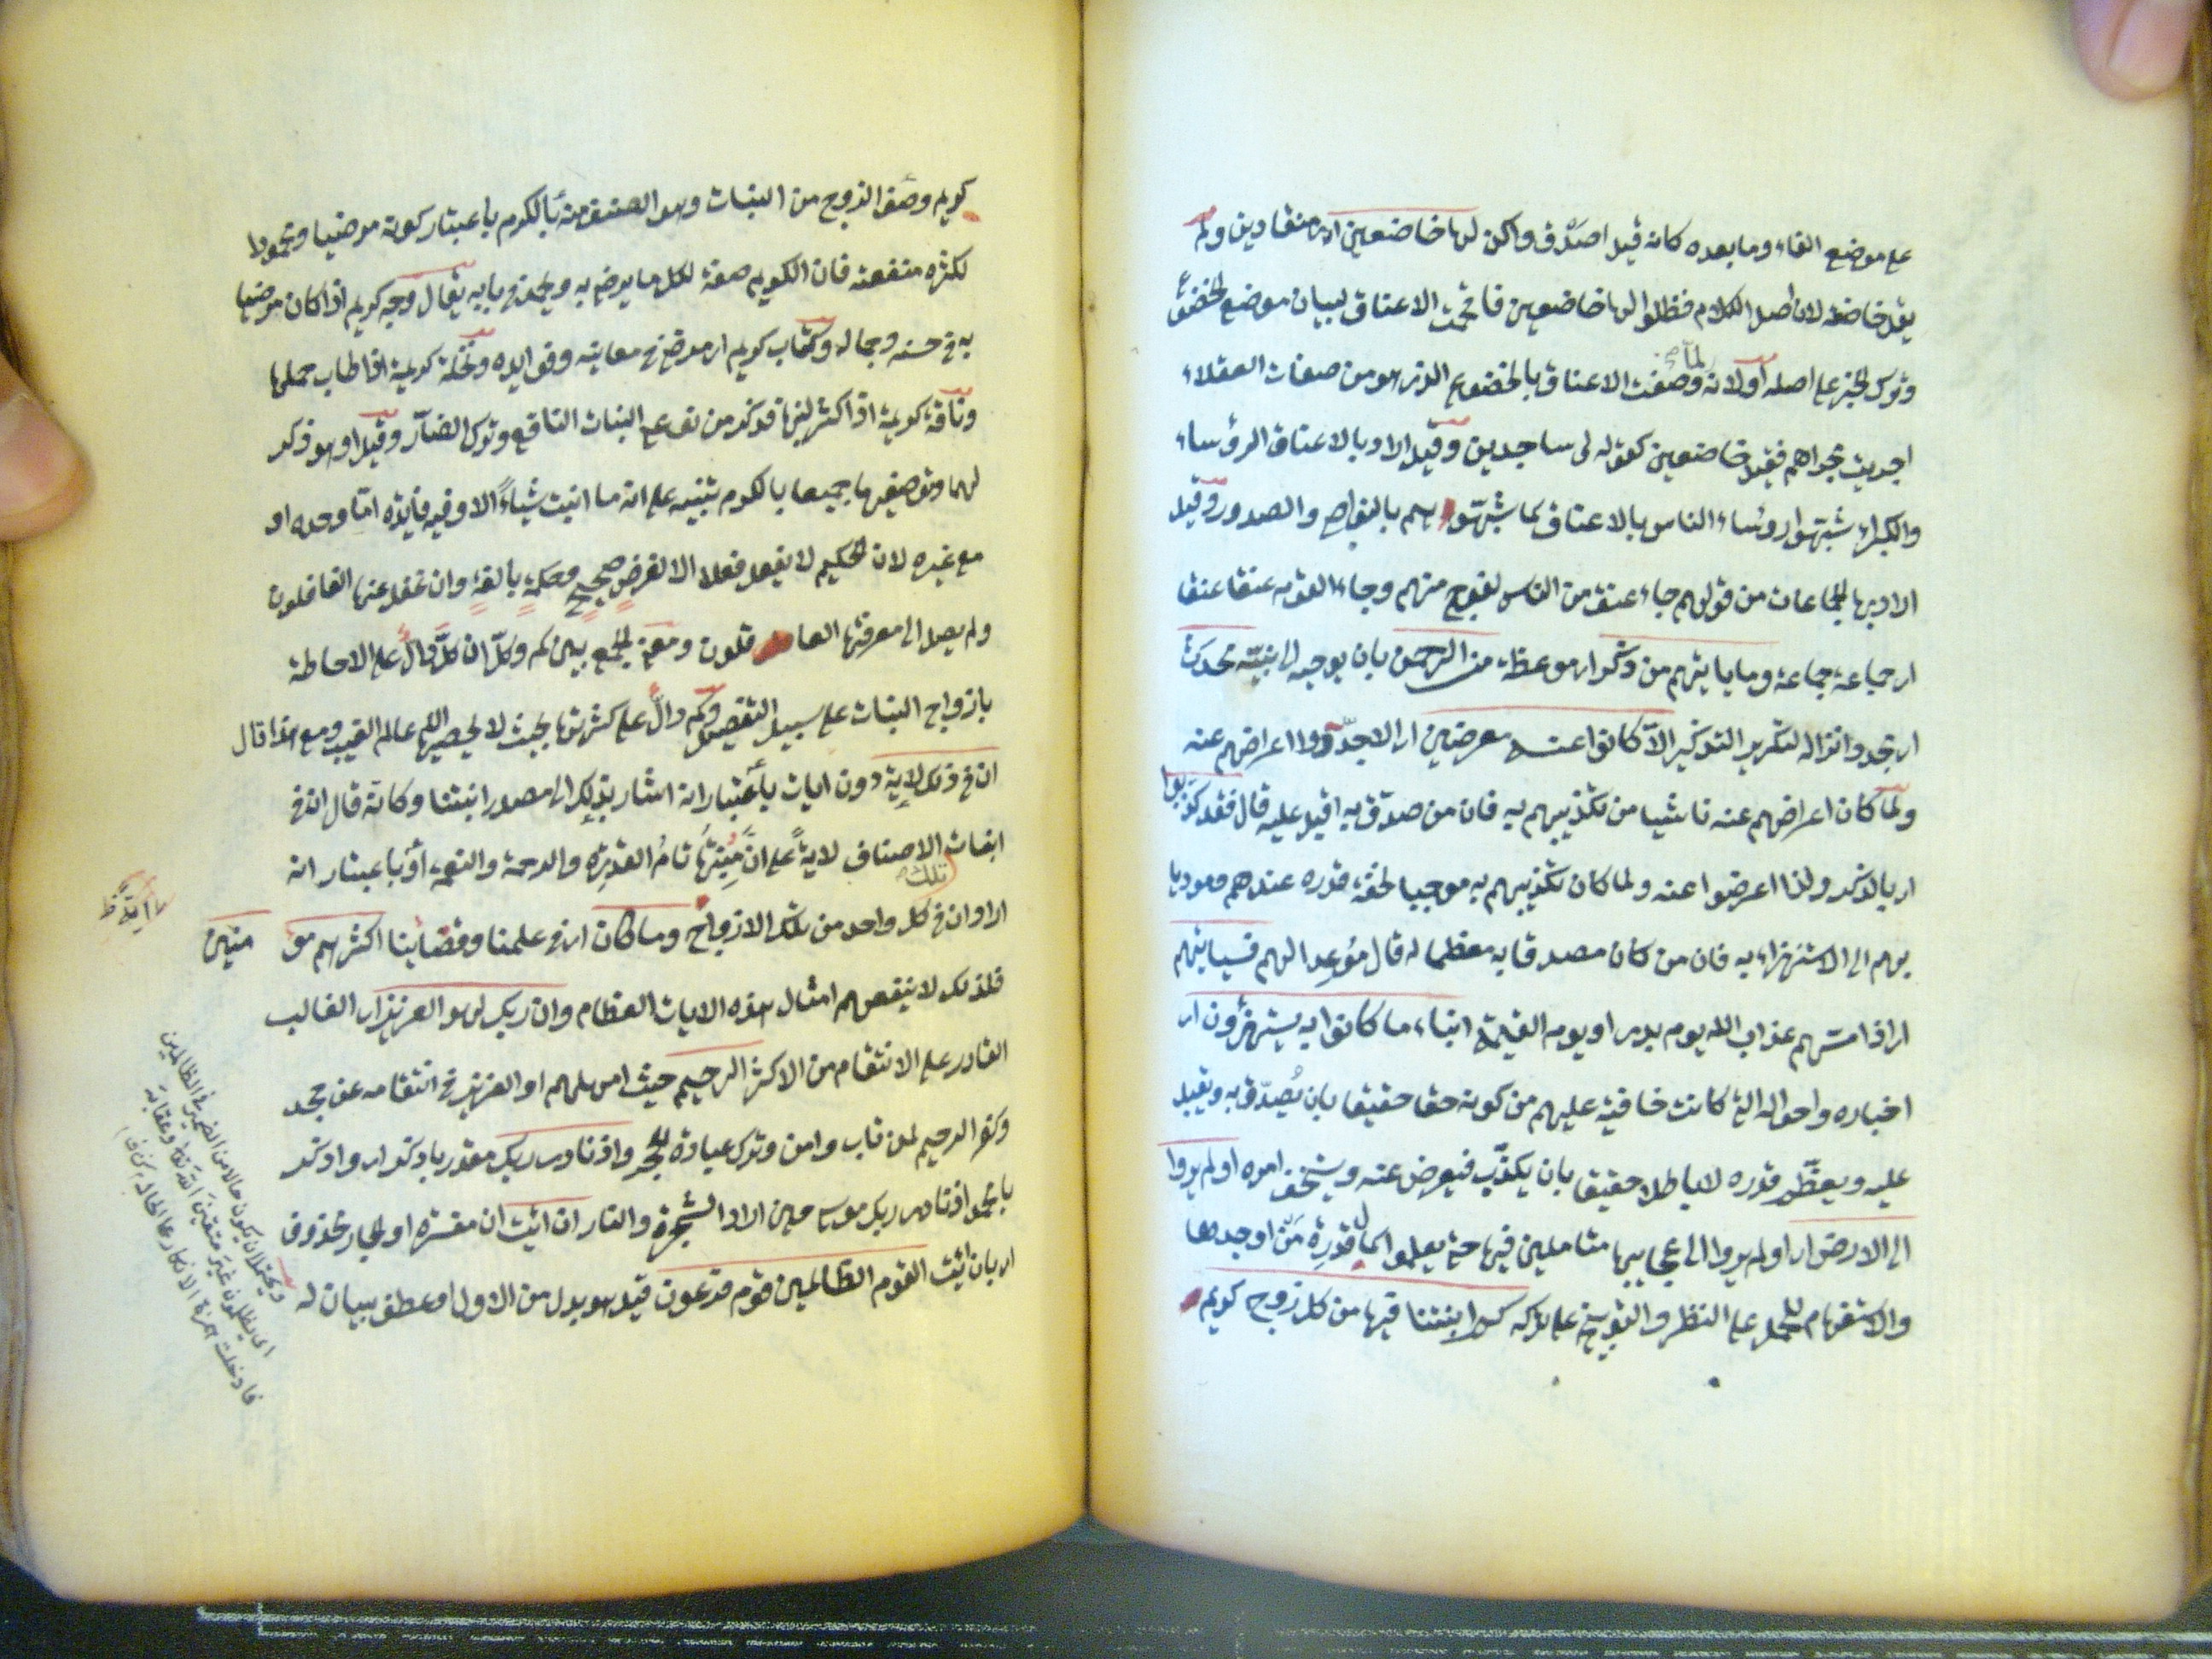 على موضع الفاء وما بعده كانه قيل اصدق واكن لها خاضعين اى منقادين ولم
يقل خاضعة لان اصل الكلام فظلوا لها خاضعين فاقحمت الاعناق لبيان موضع الخضوع
وترك الخبر على اصله او لانه لما وصفت الاعناق بالخضوع الذى هو من صفات العقلاء
اجريت مجراهم فقيل خاضعين كقوله لى ساجدين وقيل اراد بالاعناق الرؤساء
والكبراء شبهوا رؤساء الناس بالاعناق كما شبهوا هم بالنواصى والصدور وقيل
اراد بها الجماعات من قولهم جاء عنق من الناس لفوج منهم وجاء القوم عنقا عنقا
اى جماعة جماعة وما ياتيهم من ذكر اى موعظة من الرحمن بان يوحيه الى نبيه محدث
اى مجدد انزاله لتكرير التذكير الا كانوا عنه معرضين اى الا جددوا اعراضهم عنه
ولما كان اعراضهم عنه ناشيا من تكذيبهم به فان من صدق به اقبل عليه قال فقد كذبوا
اى بالذكر ولذا اعرضوا عنه ولما كان تكذيبهم به موجبا لخفة قدره عندهم ومؤديا
بهم الى الاستهزاء به فان من كان مصدقا به معظما له قال موعدا لهم فسياتيهم
اى اذا مسهم عذاب الله يوم بدر او يوم القيمة انباء ما كانوا به يستهزؤن اى
اخباره واحواله التى كانت خافية عليهم من كونه حقا حقيقا بان يُصدّق به ويقبل
عليه ويعظّم قدره لا باطلا حقيقا بان يكذّب فيعرض عنه ويستخف امره اولم يروا
الى الارض اى اولم يروا الى عجايبها متاملين فيها حتى يعلموا كمال قدرة من اوجدها
والاستفهام للحمل على النظر والتوبيخ على تركه كم انبتنا فيها من كل زوج كريم
كريم وصف الزوج من النبات وهو الصنف منه بالكرم باعتبار كونه مرضيا ومحمودا
لكثرة منفعته فان الكريم صفة لكل ما يرضى به ويحمد فى بابه يقال وجه كريم اذا كان مرضيا
به فى حسنه وجماله وكتاب كريم اى مرضى فى معانيه وفوايده ونخلة كريمة اذا طاب حملها
وناقة كريمة اذا كثر لبنها فذكر من نوعى النبات النافع وترك الضار وقيل او هو ذكر
لهما وتوصيفهما جميعا بالكرم تنبيه على انه ما انبت شياءً الا وفيه فايدة امّا وحده او
مع غيره لان الحكيم لا يفعل فعلا الا لغرض صحيح وحكمة بالغة وان غفل عنها الغافلون
ولم يصل الى معرفتها العا قلون ومعنى الجمع بين كم وكلّ ان كلّ دالّ على الاحاطة
بازواج النبات على سبيل التفصيل وكم دالّ على كثرتها بحيث لا يحصيها الا عالم الغيب ومع هذا قال
ان فى ذلك لاية دون ايات باعتبار انه اشار بذلك الى مصدر انبتنا وكانه قال ان فى
انبات الاصناف لايةً على انّ مُنبتها تامُ القدرة والرحمة والنعمة او باعتبار انه
اراد ان فى كل واحد من تلك الازواج وما كان اى فى علمنا وقضاينا اكثرهم مؤ منين
تلك
لاية ظ
فلذلك لا ينفعهم امثال هذه الايات العظام وان ربك لهو العزيز اى الغالب
القادر على الانتقام من الاكثر الرحيم حيث امهلهم او العزيز فى انتقامه عن جحد
وكفر الرحيم لمن تاب وامن وترك عبادة الحجر واذ نادى ربك مقدر باذكر اى واذكر
يا محمد اذ نادى ربك موسى حين اراد الشجرة والنار ان ائت ان مفسرة او الجار محذوف
اى بان ائت القوم الظالمين قوم فرعون قيل هو بدل من الاول او عطف بيان له
ويحتمل ان يكون حالا من الضمير فى الظالمين
اى يظلمون غير متقين الله تع وعقابه
فادخلت همزة الانكار على الحال